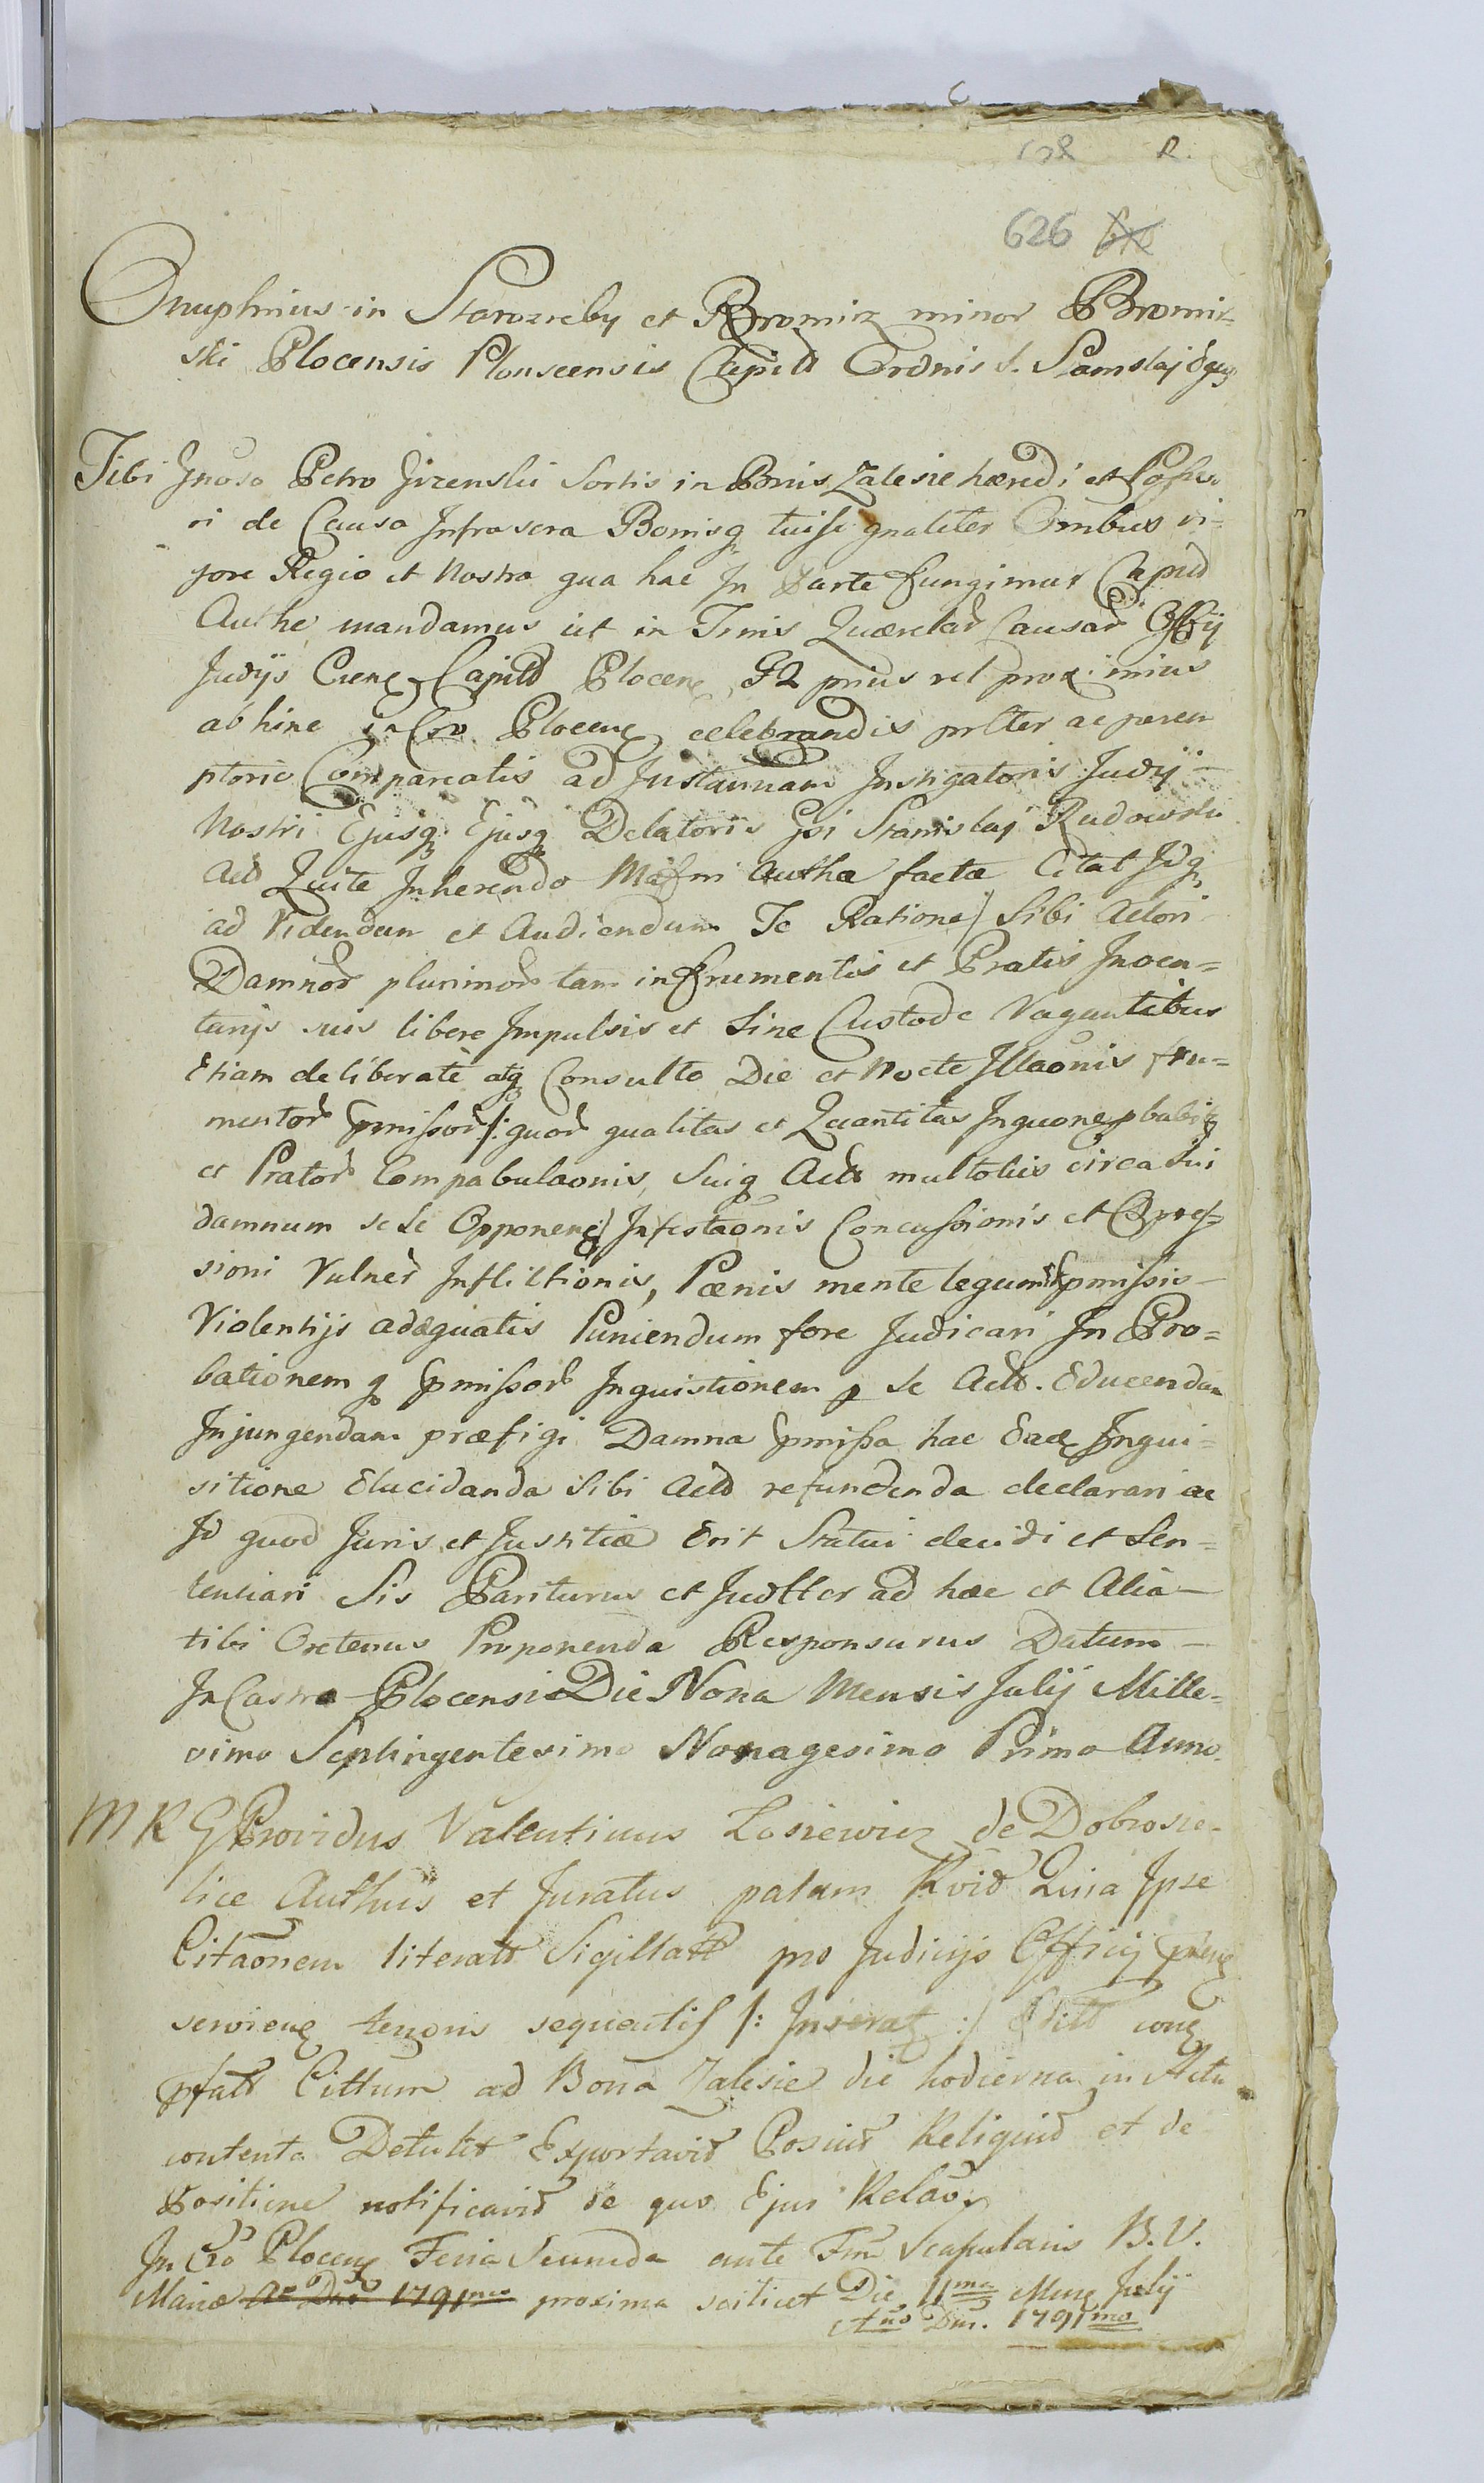 628 R.
626
Onuphrius in Staroźreby et Bromirz minor Bromir=
ski Plocensis Plonscensis Capits Ordnis S. Stanislaj Eques
Tibi Gnoso Petro Jizenski Sortis in Bonis Zalesie hæredi et Posseso
ri de Causa Infrascra Bonisq tuis gnaliter Omibus vi=
gore Regio et Nostra qua hac In Parte fungimur Capild
Authe mandamus ut in Trmis Querelar Causar Offij
Judijs Crens Capitd Plocens G2 prius vel proximius
ab hinc in Cro Plocens celebrandis prlter ac perem
ptorie Compareatis ad Instantiam Instigatoris Judij
Nostri Ejusq Ejusq Delatoris Gsi Stanislaj Rudowski
Act Qui te Inherendo Mafni Authæ factæ Citat Idq
ad Videndum et Audiendum Te Ratione Sibi Actori
Damnor plurimor tam in frumentis et Pratis Inven=
tarijs suis libere Impulsis et Sine Custode Vagantibus
Etiam deliberate atq Consulto Die et Nocte Illaonis fru=
mentor pmissor /: quor qualitas et Quantitas Inquone pbabitz
et Prator Compabulaonis, Suiq Acts multoties circa Sui
damnum se Se Opponens / Infestaonis Concussionis et Opres=
sioni Vulner Inflictionis, Pœnis mente legum pmissis
Violentijs adæquatis Puniendum fore Judicari In Pro=
bationem q pmissor Inquistionem p Se Acto. Educendam
Injungendam præfigi Damna pmissa hac Eade Inqui=
sitione Elucidanda Sibi Actd refundenda declarari ac
Id quod Juris et Justitiæ Erit Statui decidi et Sen=
tentiari Sis Pariturus et Judtter ad hæc et Alia
tibi Oretenus Proponenda Responsurus Datum
In Castro Plocensi Die Nona Mensis Julij Mille=
simo Septingentesimo Nonagesimo Primo Anno.
M R G Providus Valentinus Losiewicz de Dobrosie=
lice Authus et Juratus palam Rvid Quia Ipse
Citaonem literatt Sigillatt pro Judicijs Officij prens
serviens tenoris sequentis /: Inseratz :/ Editt cong
pfatt Cittum ad Bona Zalesie die hodierna in Actu
contenta Detulit Exportavit Posuit Reliquid et de
Positione notificavit de quo Ejus Relao
In Cro Plocens Feria Secunda ante Fm Scapularis B. V.
Mariæ Ao Dni 1791mo proxima scilicet Die 11ma Mens Julij
Anno Dni. 1791mo